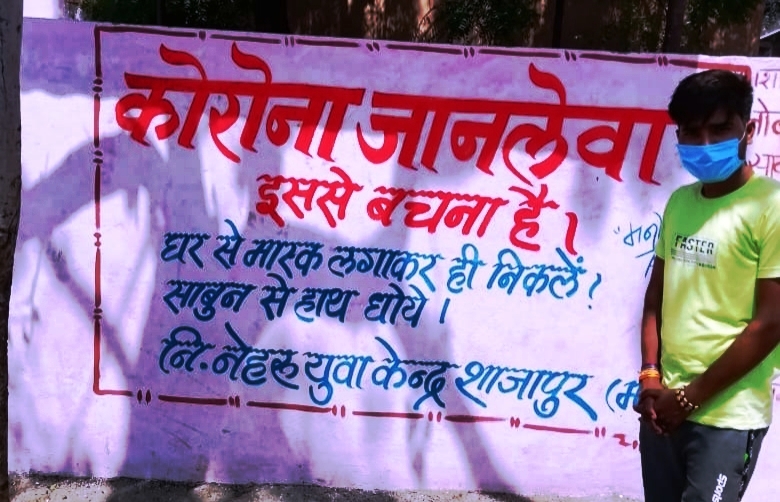 कोरोना जानलेवा
इससे बचना है।
घर से मास्क लगाकर ही निकलें!
साबुन से हाथ धोये।
नि. नेहरू युवा केन्द्र शाजापुर (म
FASTER